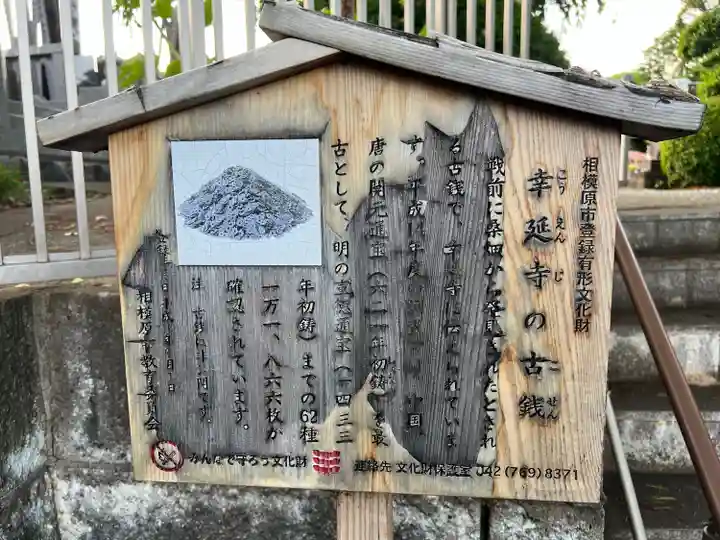 相模原市登録有形文化財
こう えん じ こ せん
幸延寺の古銭
戦前に桑畑から発見されたとされ
る古銭で、幸延寺に伝えられていま
す。平成 年度 中国、
唐の開元通宝(六二一年初鋳)を最
古として、明の宣徳通宝(一四三三
年初鋳)までの62種
一万一、八六六枚が
確認されています。
注 古銭 です。
登録 平成 年 月 日
相模原市教育委員会
みんなで守ろう文化財
連絡先 文化財保護室 042(769)8371